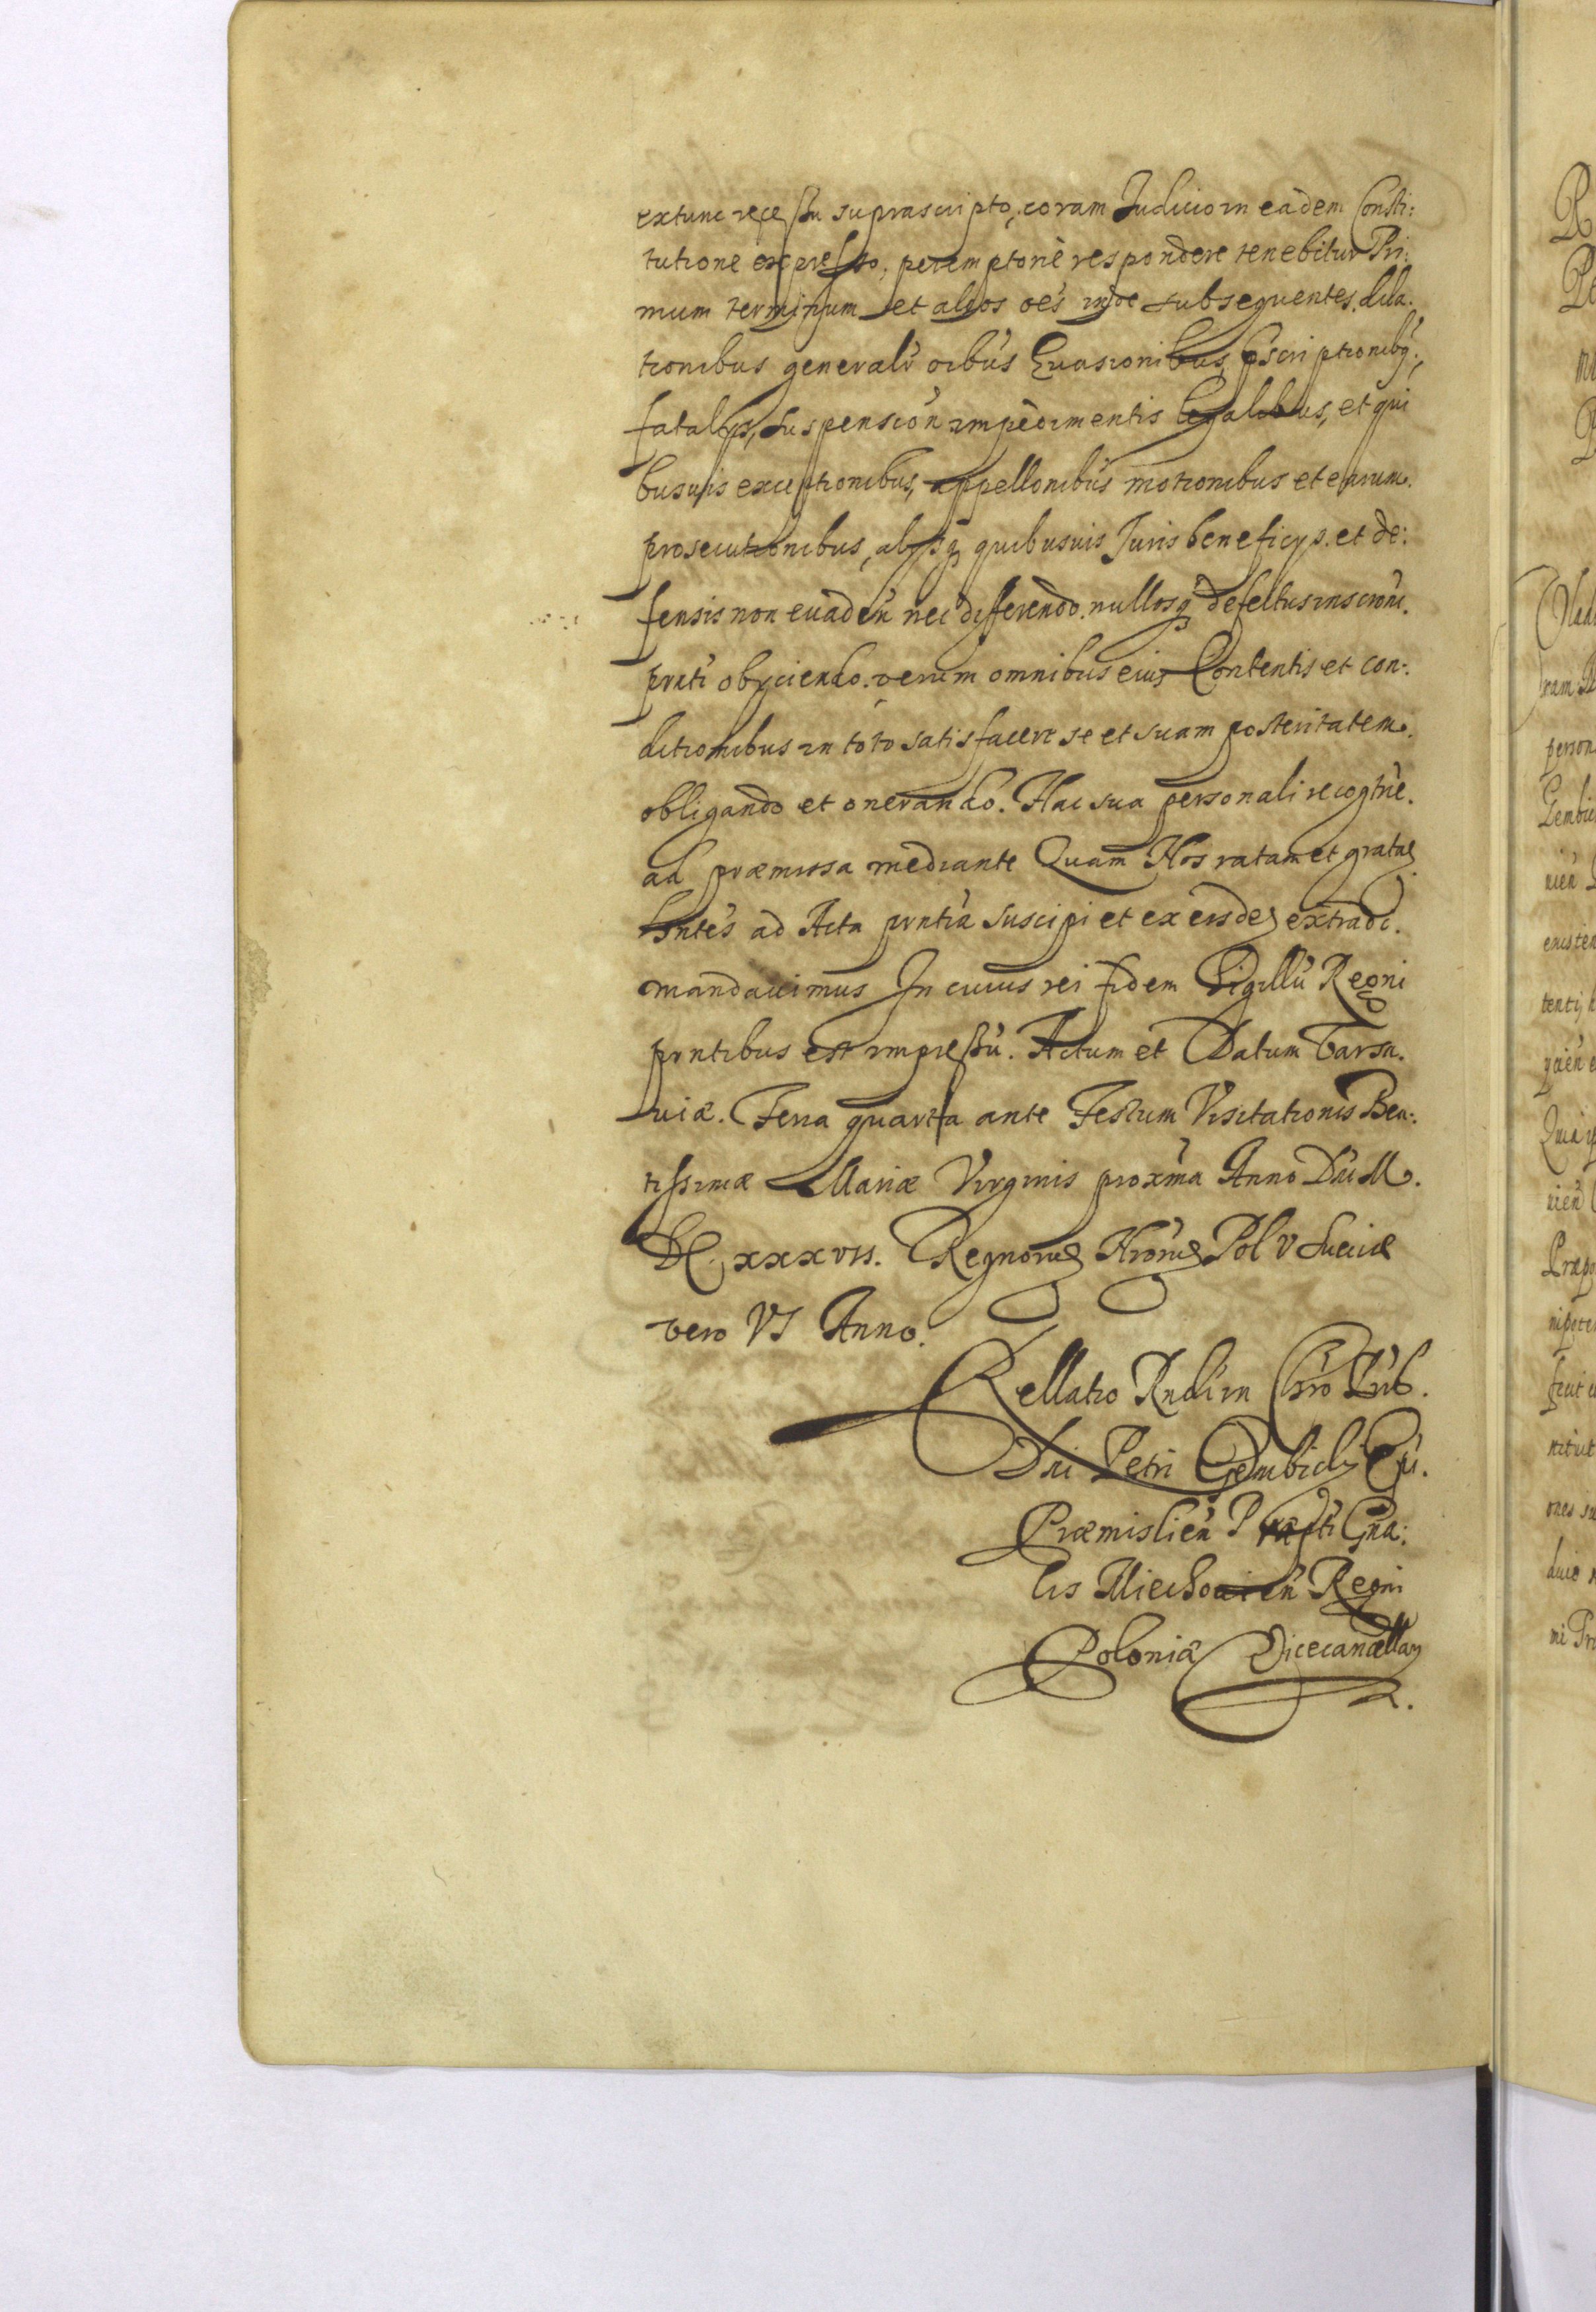 extunc recessu suprascripto, coram Judicio in eadem Consti:
tutione expresso, peremptorie respondere tenebitur Pri:
mum terminum et alios oes inde subsequentes. dila.
tionibus generalr oibus Euasionibus, pscriptionibq;
fatalijs, suspension impedimentis legalibus, et qui
busuis exceptionibus, appellonibus motionibus et earum.
prosecutionibus, alijsq quibusuis Juris beneficijs. et de:
fensis non euaden nec differendo. nullosq defectus inscrom.
prnti obijciendo. verum omnibus eius Contentis et con:
ditionibus in toto satisfacere se et suam posteritatem.
obligando et onerando. Hac sua personali recogtne.
ad præmissa mediante Quam Nos ratam et gratam
hntes ad Acta prntia suscipi et ex eisdem extradi.
mandauimus In cuius rei fidem Sigillu Regni
prntibus est impressu. Actum et Datum Varsa.
uiæ. Feria quarta ante Festum Visitationis Bea:
tissimæ Mariæ Virginis proxima Anno Dni M.
DC. xxxvii. Regnorum Nrorum Pol v Sueciæ
vero VI Anno.
Rellatio Rndi in Chro Pris.
Dni Petri Gembicki Epi.
Præmislien Præpti Gna:
lis Miechouien Regni
Poloniæ Vicecancellarij